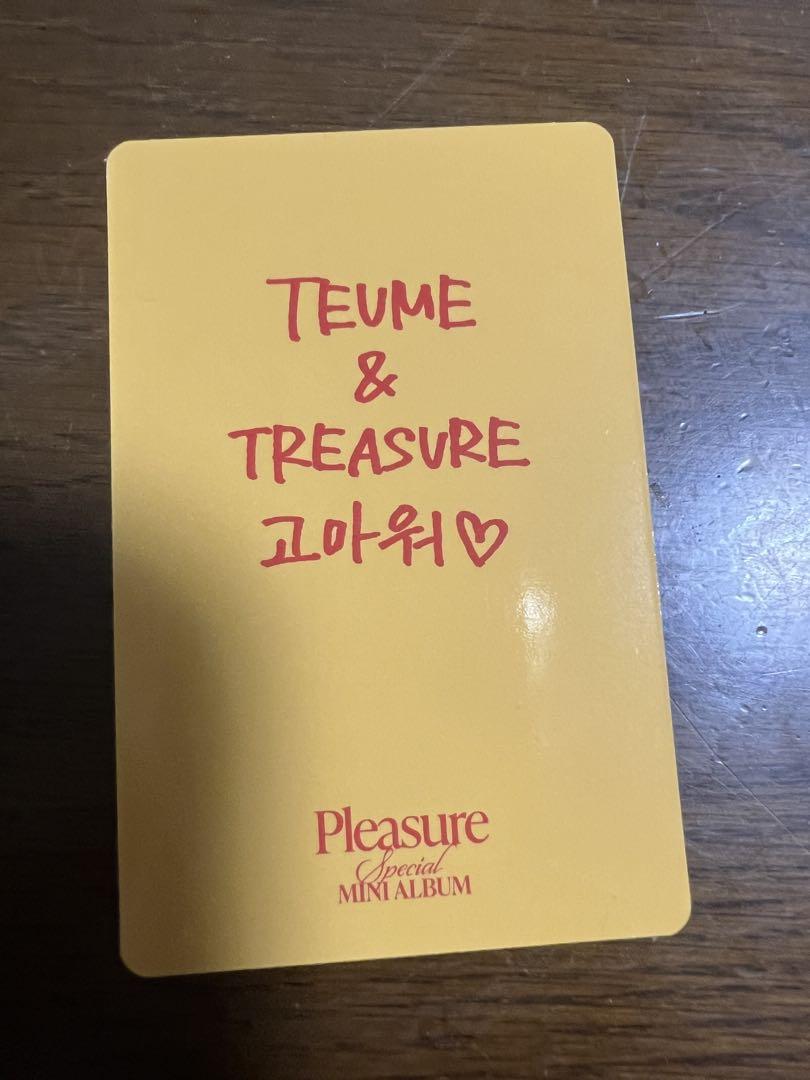 TEUME
&
TREASURE
고마워♡
Pleasure
Special
MINI ALBUM